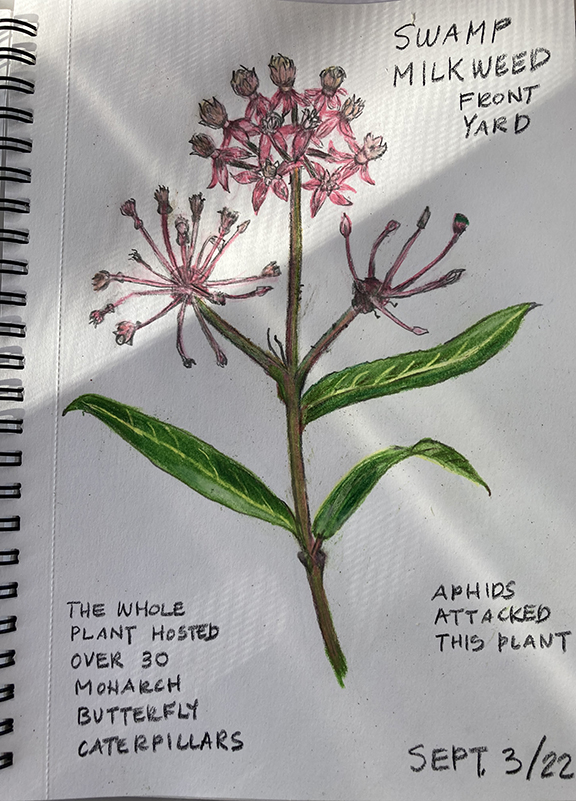 SWAMP
MILKWEED
FRONT
YARD
THE WHOLE
PLANT HOSTED
OVER 30
MONARCH
BUTTERFLY
CATERPILLARS
APHIDS
ATTACKED
THIS PLANT
SEPT. 3/22